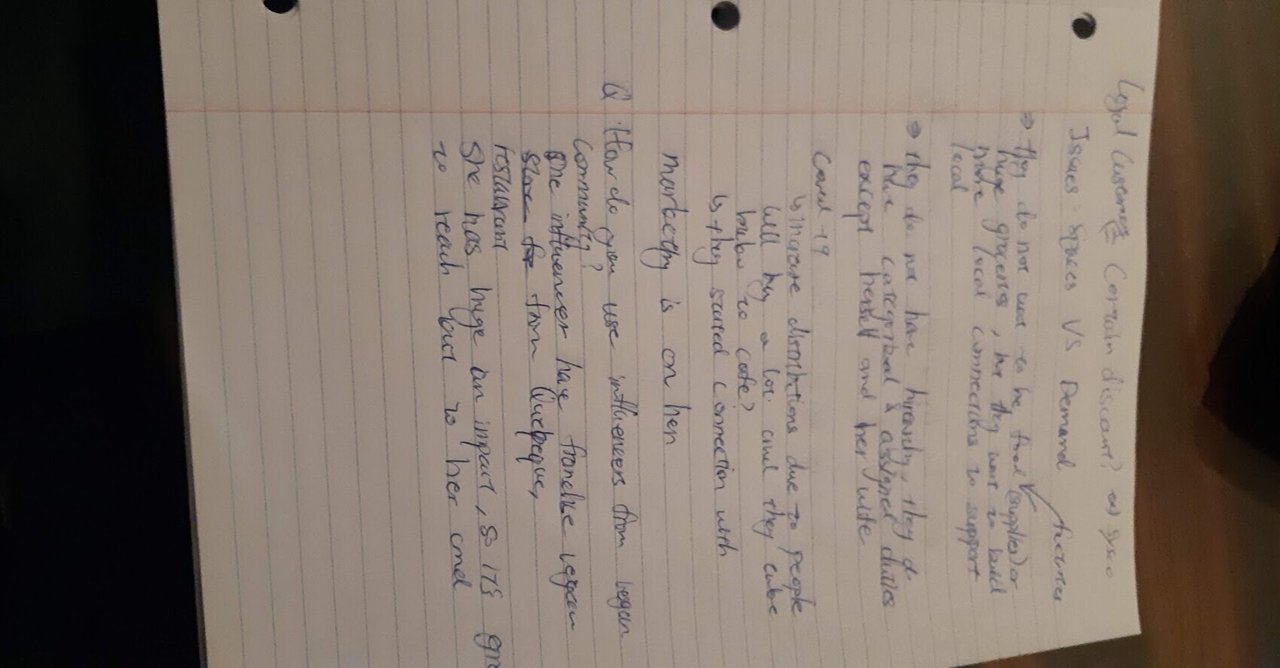 Legal Customers Contain discount?
Issues: Spaces VS Demand
⇒ they do not want to be food (supplier) or
huge grocers, but they want to build
more local connections to support
local
they do not have hirearchy, they do
have categorized & assigned duties
except herself and her wife
Covid-19
↳ increase distributions due to people
will buy a lot and they
to cafe?
↳ they started connection with
marketing is on her
Q. How do you use influencers from vegan
community?
one influencer have franchise vegan
store for from Quebeque,
restaurant
She has huge an impact, so it's
to reach out to her and